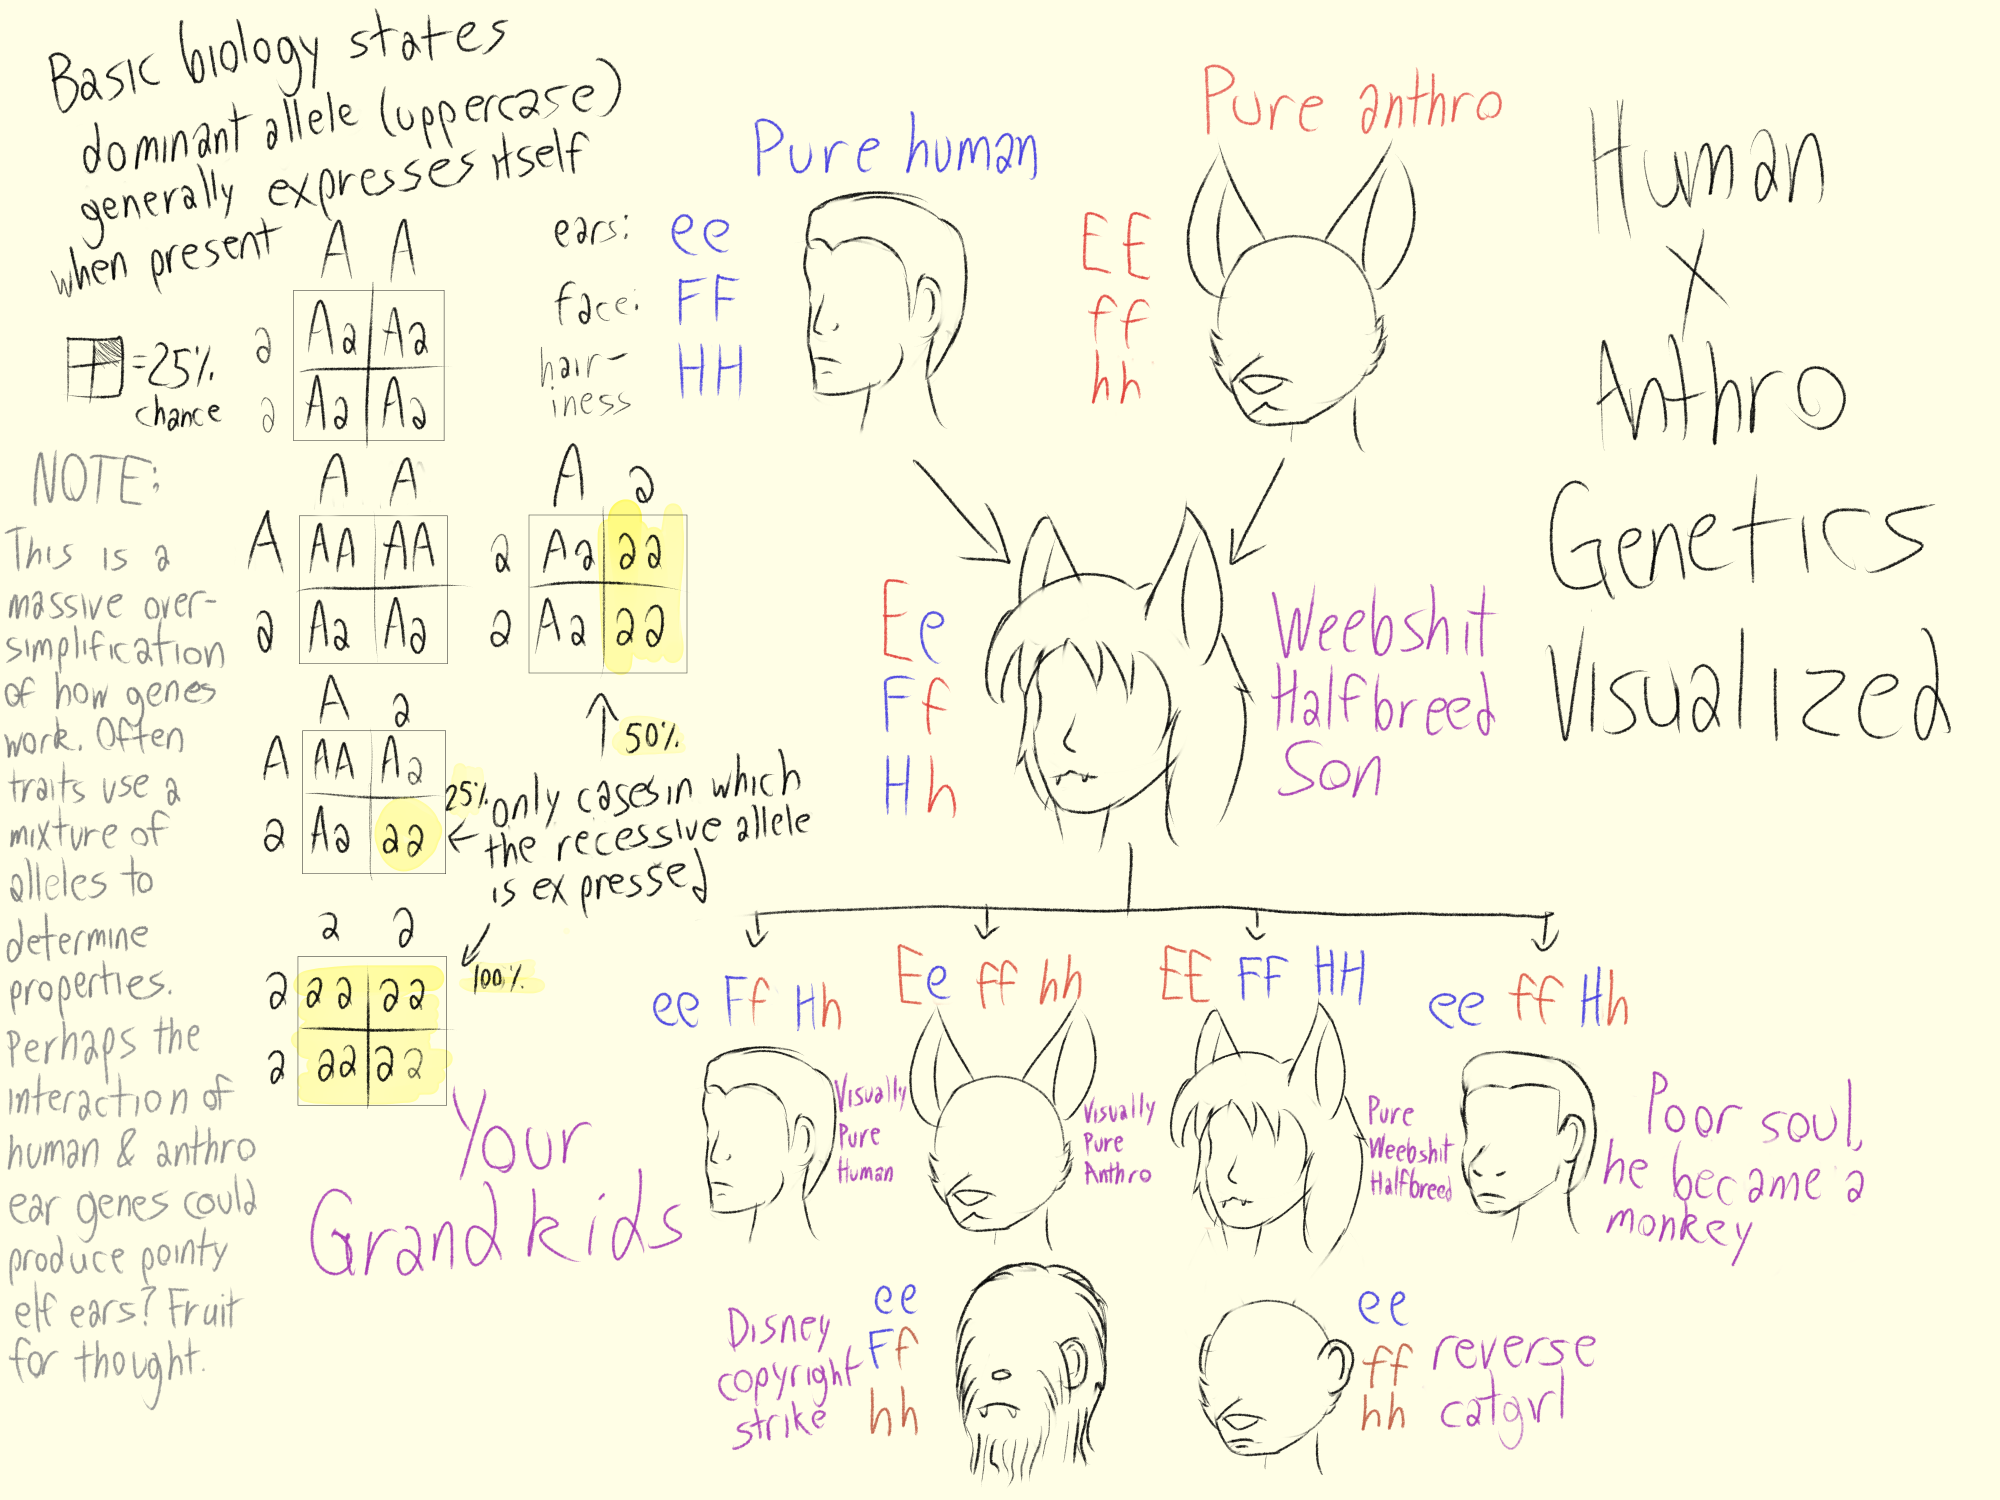 Basic biology states
dominant allele (uppercase)
generally expresses itself
when present
A A
a
a
Aa Aa
Aa Aa
=25%
chance
A A
A
a
AA AA
Aa Aa
A a
a
a
Aa aa
Aa aa
50%
A a
A
a
AA Aa
Aa aa
25%
only cases in which
the recessive allele
is expressed
a a
a
a
aa aa
aa aa
100%
NOTE:
This is a
massive over-
simplification
of how genes
work. Often
traits use a
mixture of
alleles to
determine
properties.
Perhaps the
interaction of
human & anthro
ear genes could
produce pointy
elf ears? Fruit
for thought.
Pure human
ears: ee
face: FF
hair-
iness
HH
Pure anthro
EE
ff
hh
Human
X
Anthro
Genetics
Visualized
Ee
Ff
Hh
Weebshit
Halfbreed
Son
Your
Grandkids
ee Ff Hh
Visually
Pure
Human
Ee ff hh
Visually
Pure
Anthro
EE FF HH
Pure
Weebshit
Halfbreed
ee ff Hh
Poor soul,
he became a
monkey
Disney
copyright
strike
ee
Ff
hh
ee
ff
hh
reverse
catgirl